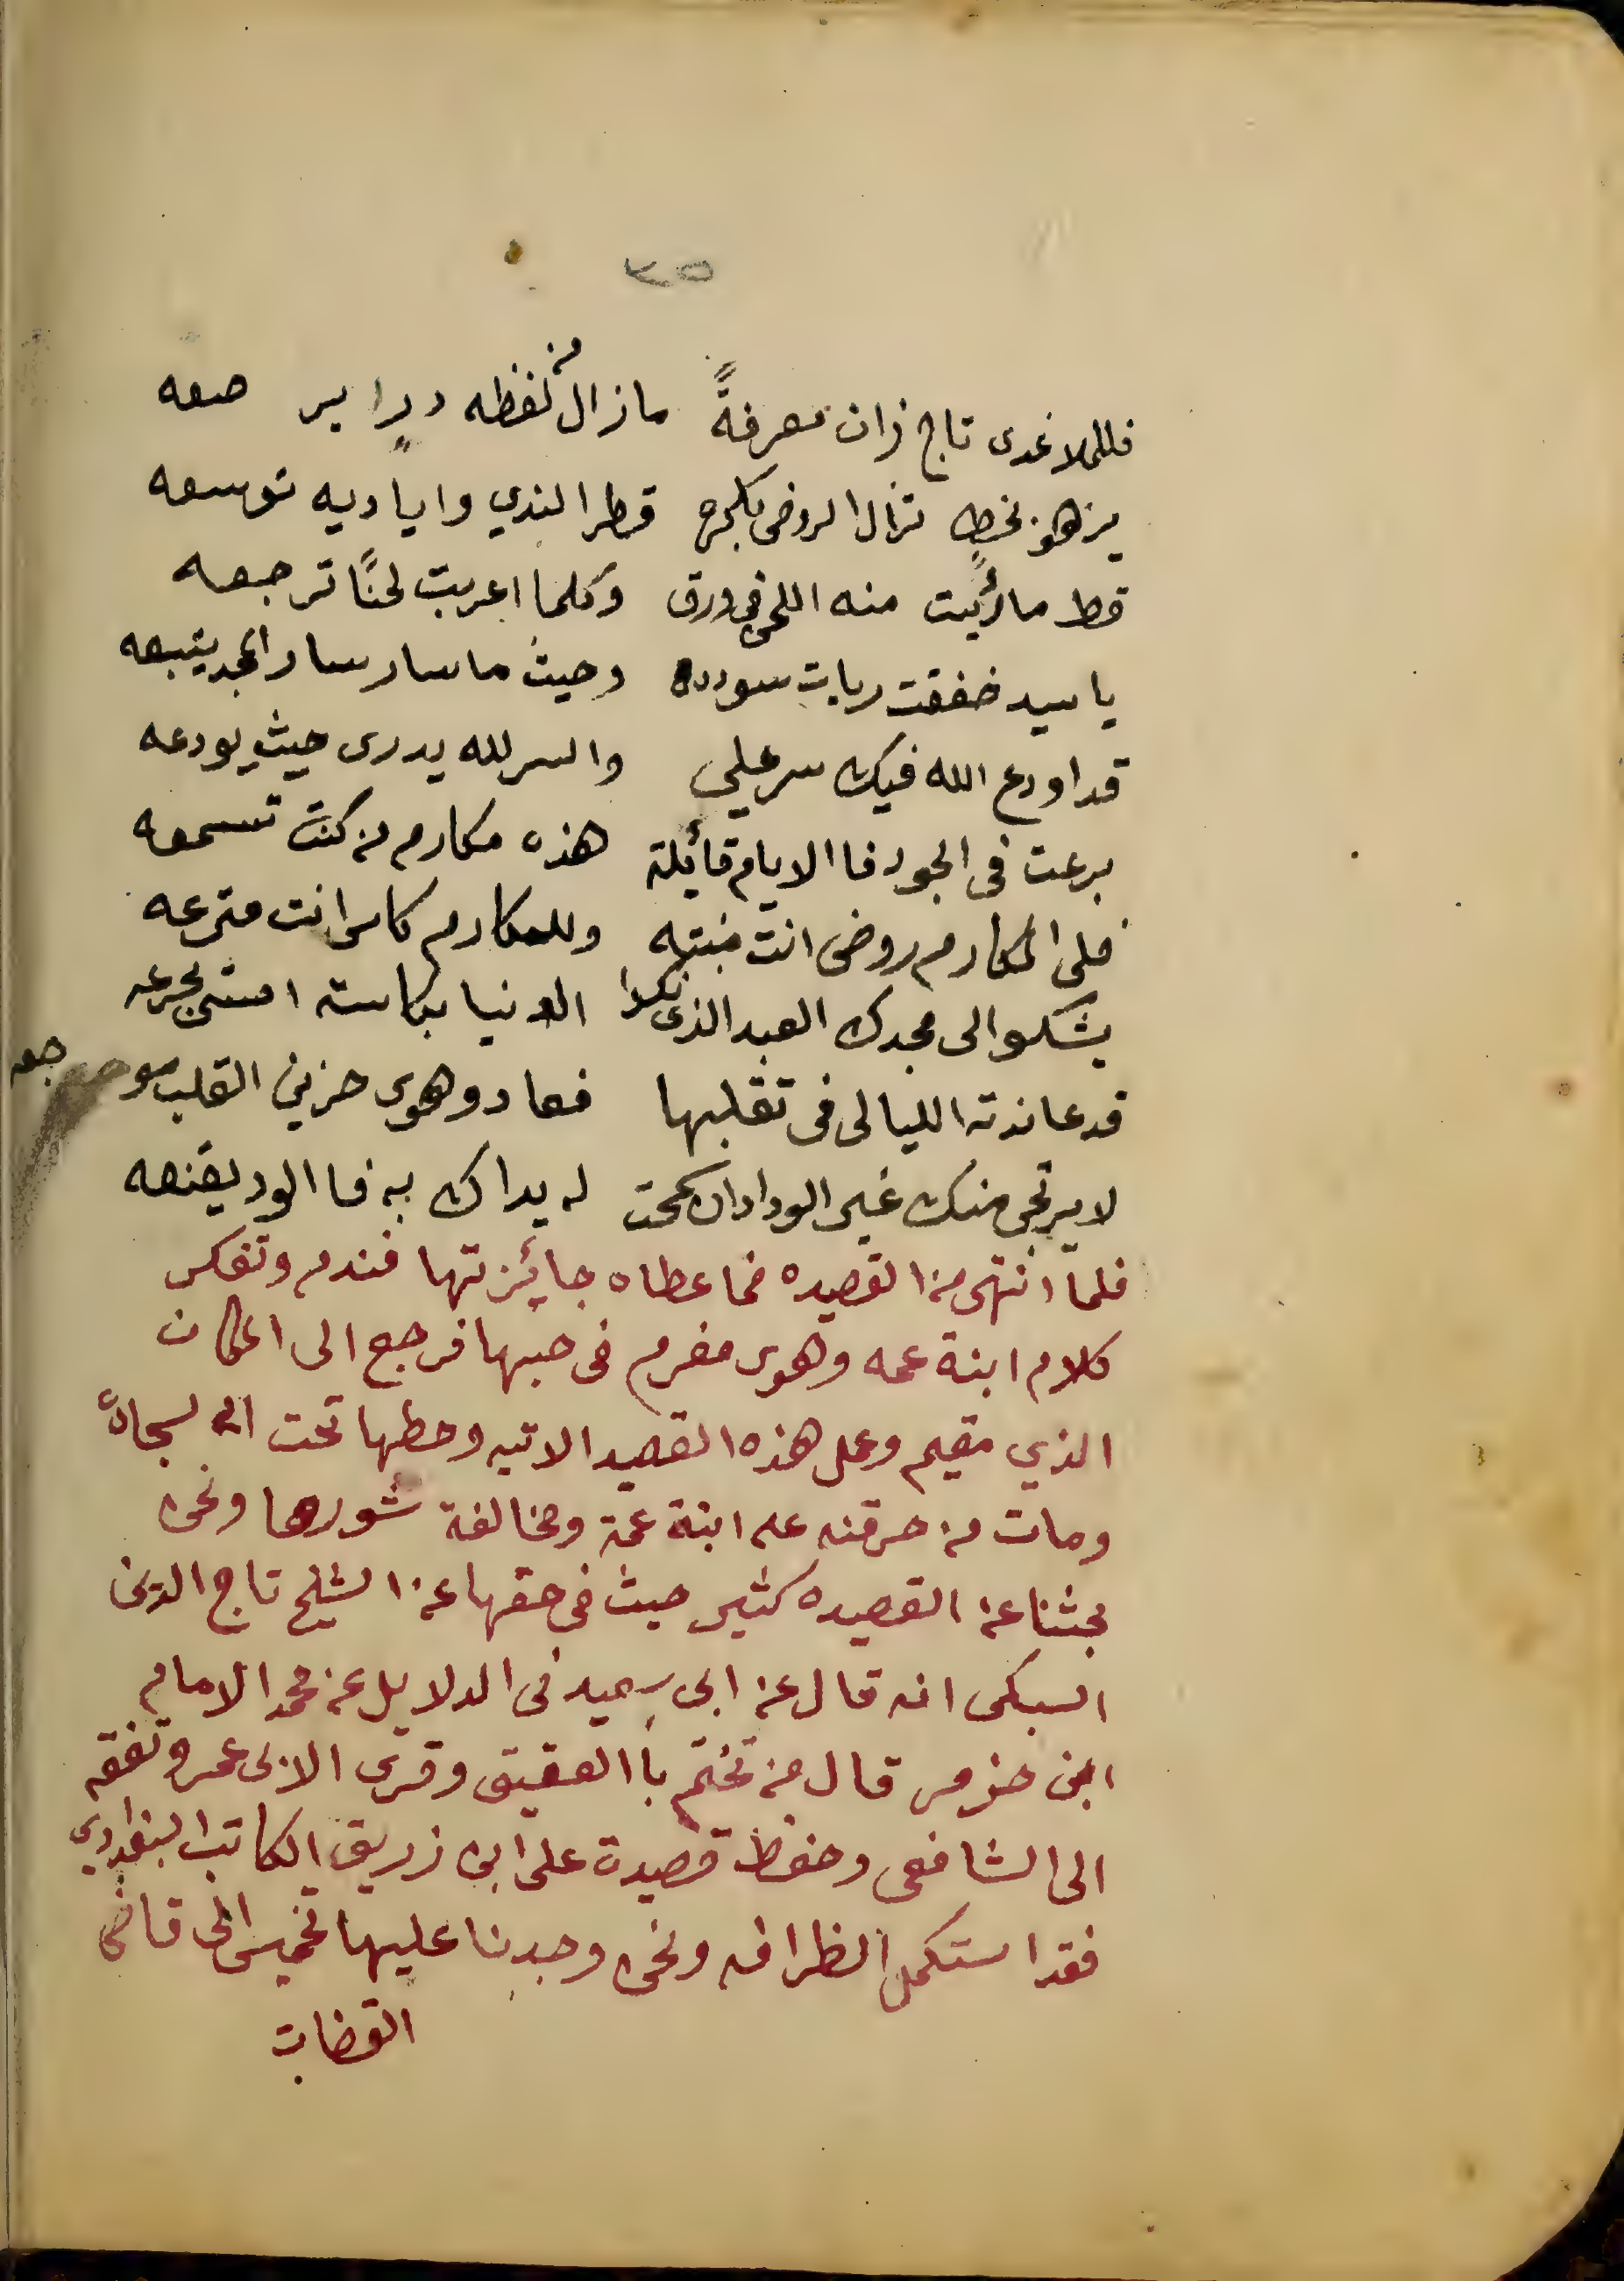 ٣٥
فللملا غدى تاج زان معرفةً مازال من لفظه درا ير صعه
يزهو بخطٍ تزال الروض بكره قطر الندي واياديه توسعه
قط مارئيت منه اللحن في ورق وكلما اعربت لحنًا ترجعه
يا سيد خفقت ربات سودده وحيث ما سار سار المجد يتبعه
قد اودع الله فيك سر علي والسر لله يدرى حيث يودعه
برعت في الجود فا الايام قائلة هذه مكارم من كنت تسمعه
فلى المكارم روض انت منبته وللمكارم كاس انت مترعه
يشكوا الى مجدك العبد الذى نكدا الدنيا بكاسته امسى تجرعه
قد عاندته الليالى فى تقلبها فعاد وهوى حزين القلب موجعه
لا يرتجى منك غير الوداد ان سمحت له يداك به فا الود يقنعه
فلما انتهى من القصيده فما عطاه جائزتها فندم وتفكر
كلام ابنة عمه وهوى مغرم فى حبها فرجع الى المكان
الذي مقيم وعمل هذه القصيد الاتيه وحطها تحت السجاده
ومات من حرقته على ابنة عمه ومخالفة شورها ونحن
بحثنا عن القصيده كثير حيث فى حقها عن الشيخ تاج الدين
السبكى انه قال عن ابى سعيد فى الدلايل عن محمد الامام
ابن حزم قال من تختم با العقيق وقرى الابى عمر وتفقه
الى الشافعى وحفظ قصيدة على ابن زريق الكاتب البغدادي
فقد استكمل الظرافه ونحن وجدنا عليها تخميس الى قاضى
القضات